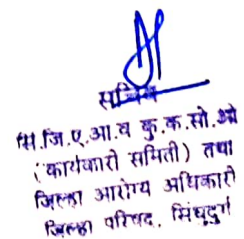 सचिव
सि.जि.ए.आ.व कु.क.सो.ओरो
(कार्यकारी समिती) तथा
जिल्हा आरोग्य अधिकारी
जिल्हा परिषद, सिंधुदुर्ग